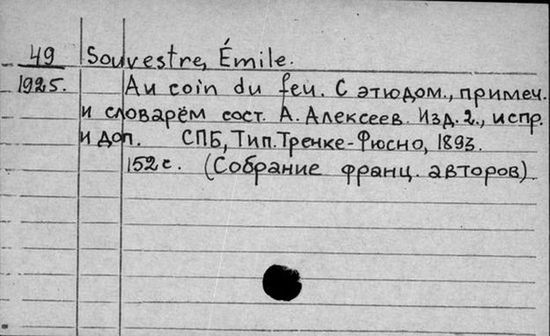 49 Souvestre, Émile.
1925. Au coin du feu. С этюдом., примеч.
и словарём сост. А. Алексеев. Изд. 2., испр.
и доп. СПБ, Тип. Тренке-Фюсно, 1893.
152 с. (Собрание франц. авторов)